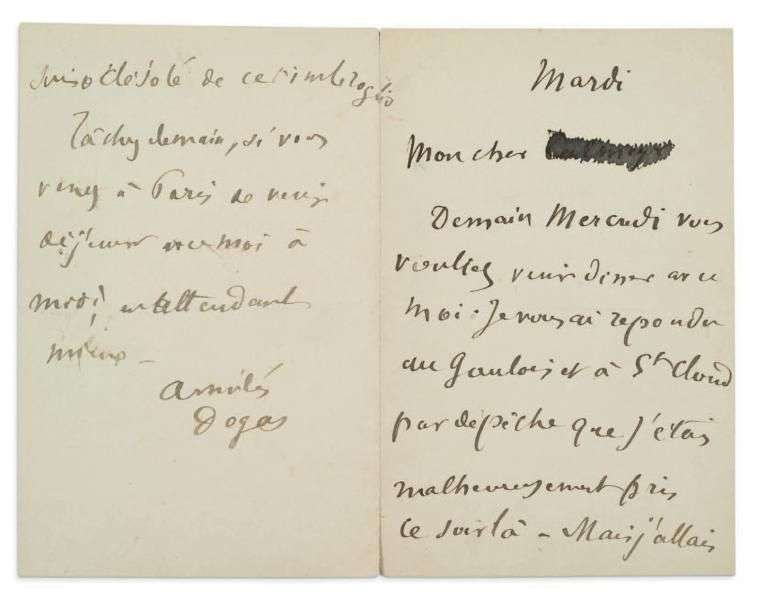 Mardi
Mon cher
Demain Mercredi vous
vouliez venir diner avec
moi. Je vous ai répondu
au Gaulois et à St Cloud
par dépêche que j'étais
malheureusement pris
ce soir là – Mais j'allais
suis désolé de cet imbroglio
Tâchez demain, si vous
venez à Paris de venir
déjeuner avec moi à
midi, en attendant
mieux –
amitiés
Degas